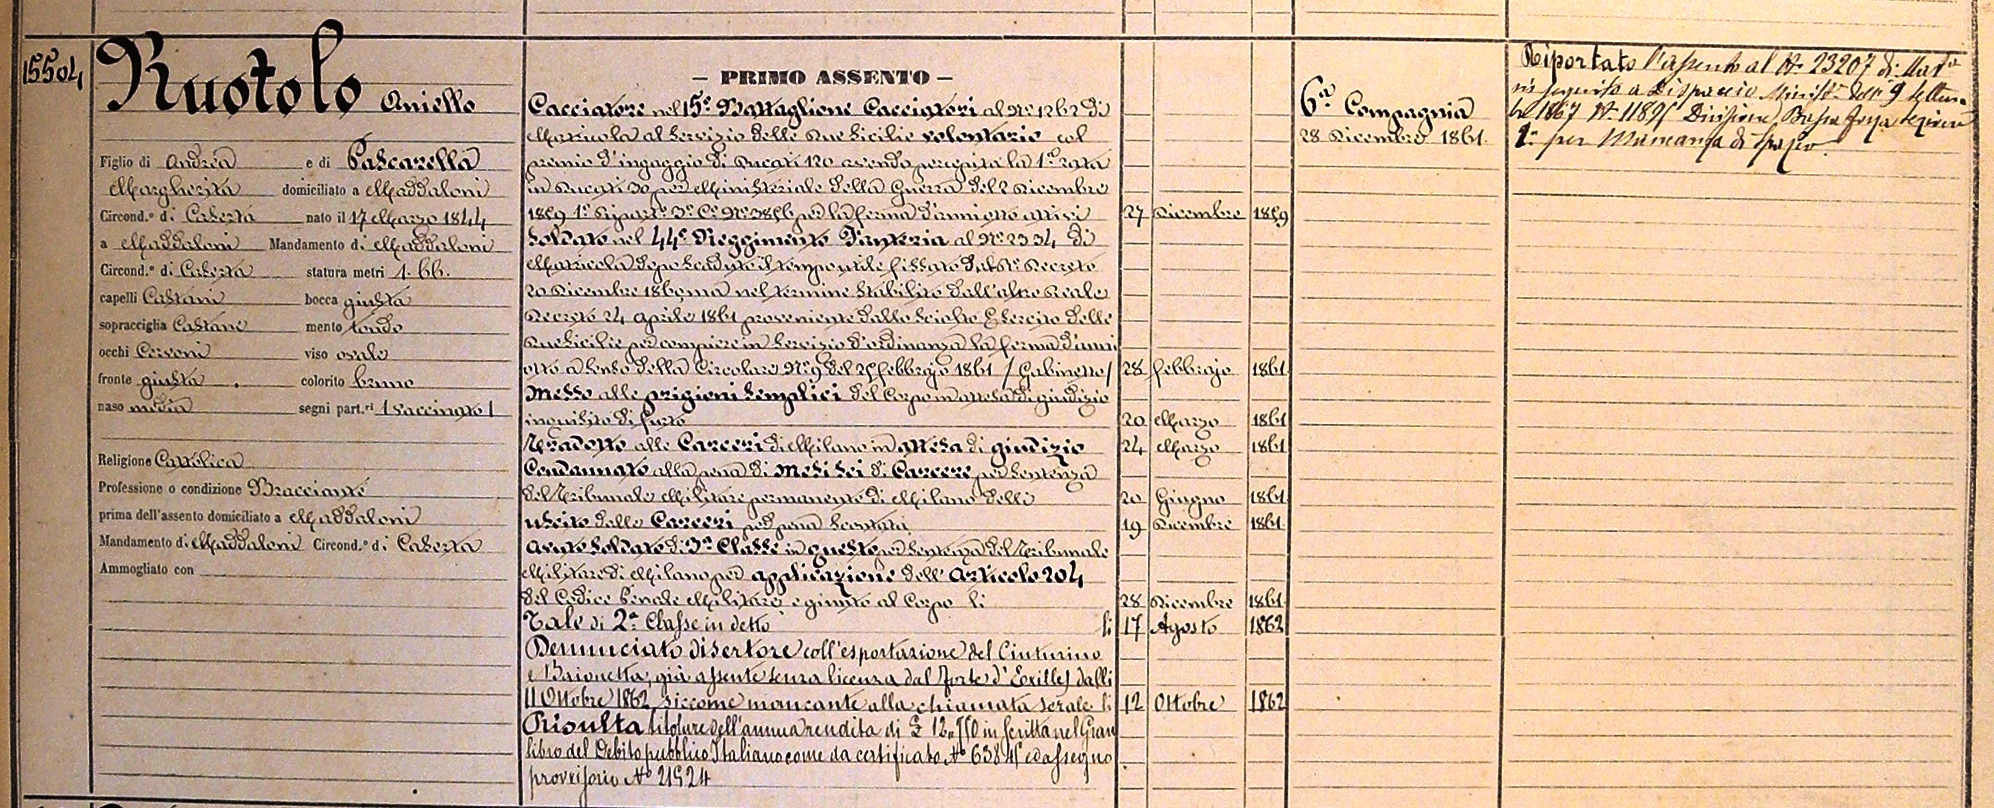 15504
Ruotolo Aniello
Figlio di Andrea e di Pascarella
Margherita domiciliato a Maddaloni
Circond.º di Caserta nato il 17 Marzo 1844
a Maddaloni Mandamento di Maddaloni
Circond.º di Caserta statura metri 1.66.
capelli Castani bocca giusta
sopracciglia Castane mento tondo
occhi Cervoni viso ovale
fronte giusta colorito bruno
naso media segni part.ri 1 vaccinato 1
Religione Cattolica
Professione o condizione Bracciante
prima dell'assento domiciliato a Maddaloni
Mandamento di Maddaloni Circond.º di Caserta
Ammogliato con
– PRIMO ASSENTO –
Cacciatore nel 15º Battaglione Cacciatori al Nº 1262 di
Matricola al Servizio delle Due Sicilie volontario col
premio d'ingaggio di Ducati 120 avendo percepita la 1ª rata
in Ducati 30 per Ministeriale della Guerra del 2 Dicembre
1859 1º Ripart.º 3º Cº Nº 3856 per la ferma d'anni otto attivi 27 Dicembre 1859
Soldato nel 44º Reggimento Fanteria al Nº 2334 di
Matricola dopo scaduto il tempo utile fissato dal R. Decreto
20 Dicembre 1860 ma nel termine stabilito dall'altro Reale
Decreto 24 Aprile 1861 proveniente dallo sciolto Esercito delle
Due Sicilie per compiere in Servizio d'ordinanza la ferma d'anni
otto a senso della Circolare Nº 9 del 25 febbrajo 1861 /Gabinetto/ 28 febbrajo 1861
Messo alle prigioni semplici del Corpo in attesa di giudizio
inquisito di furto 20 Marzo 1861
Tradotto alle Carceri di Milano in attesa di giudizio 24 Marzo 1861
Condannato alla pena di mesi sei di Carcere per Sentenza
del Tribunale Militare permanente di Milano delli 20 Giugno 1861
uscito dalle Carceri per pena scontata 19 Dicembre 1861
Avuto Soldato di 3ª Classe in questo per Sentenza del Tribunale
Militare di Milano per applicazione dell'Articolo 204
del Codice Penale Militare e giunto al Corpo li 28 Dicembre 1861
Tale di 2ª Classe in detto li 17 Agosto 1862
Denunciato disertore coll'esportazione del Cinturino
e Baionetta, già assente senza licenza dal forte d'Exilles dalli
11 Ottobre 1862, siccome mancante alla chiamata serale li 12 Ottobre 1862
Risulta titolare dell'annua rendita di £ 12,750 in scritta nel Gran
libro del Debito pubblico Italiano come da certificato Nº 6384 ed assegno
provvisorio Nº 21524
6ª Compagnia
28 Dicembre 1861.
Riportato l'assento al Nº 23207 di Mat.la
in seguito a Dispaccio Minist. dell 9 Settem-
bre 1867 Nº 11895 Divisione Bassa forza Sezione
1ª per Mancanza di spazio